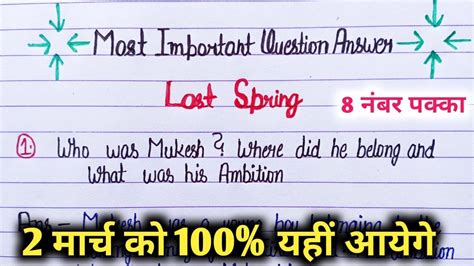 Most Important Question Answer
Lost Spring
8 नंबर पक्का
1. Who was Mukesh? Where did he belong and
what was his Ambition
2 मार्च को 100% यहीं आयेगे
Ans - Mukesh was a young boy belonging to the